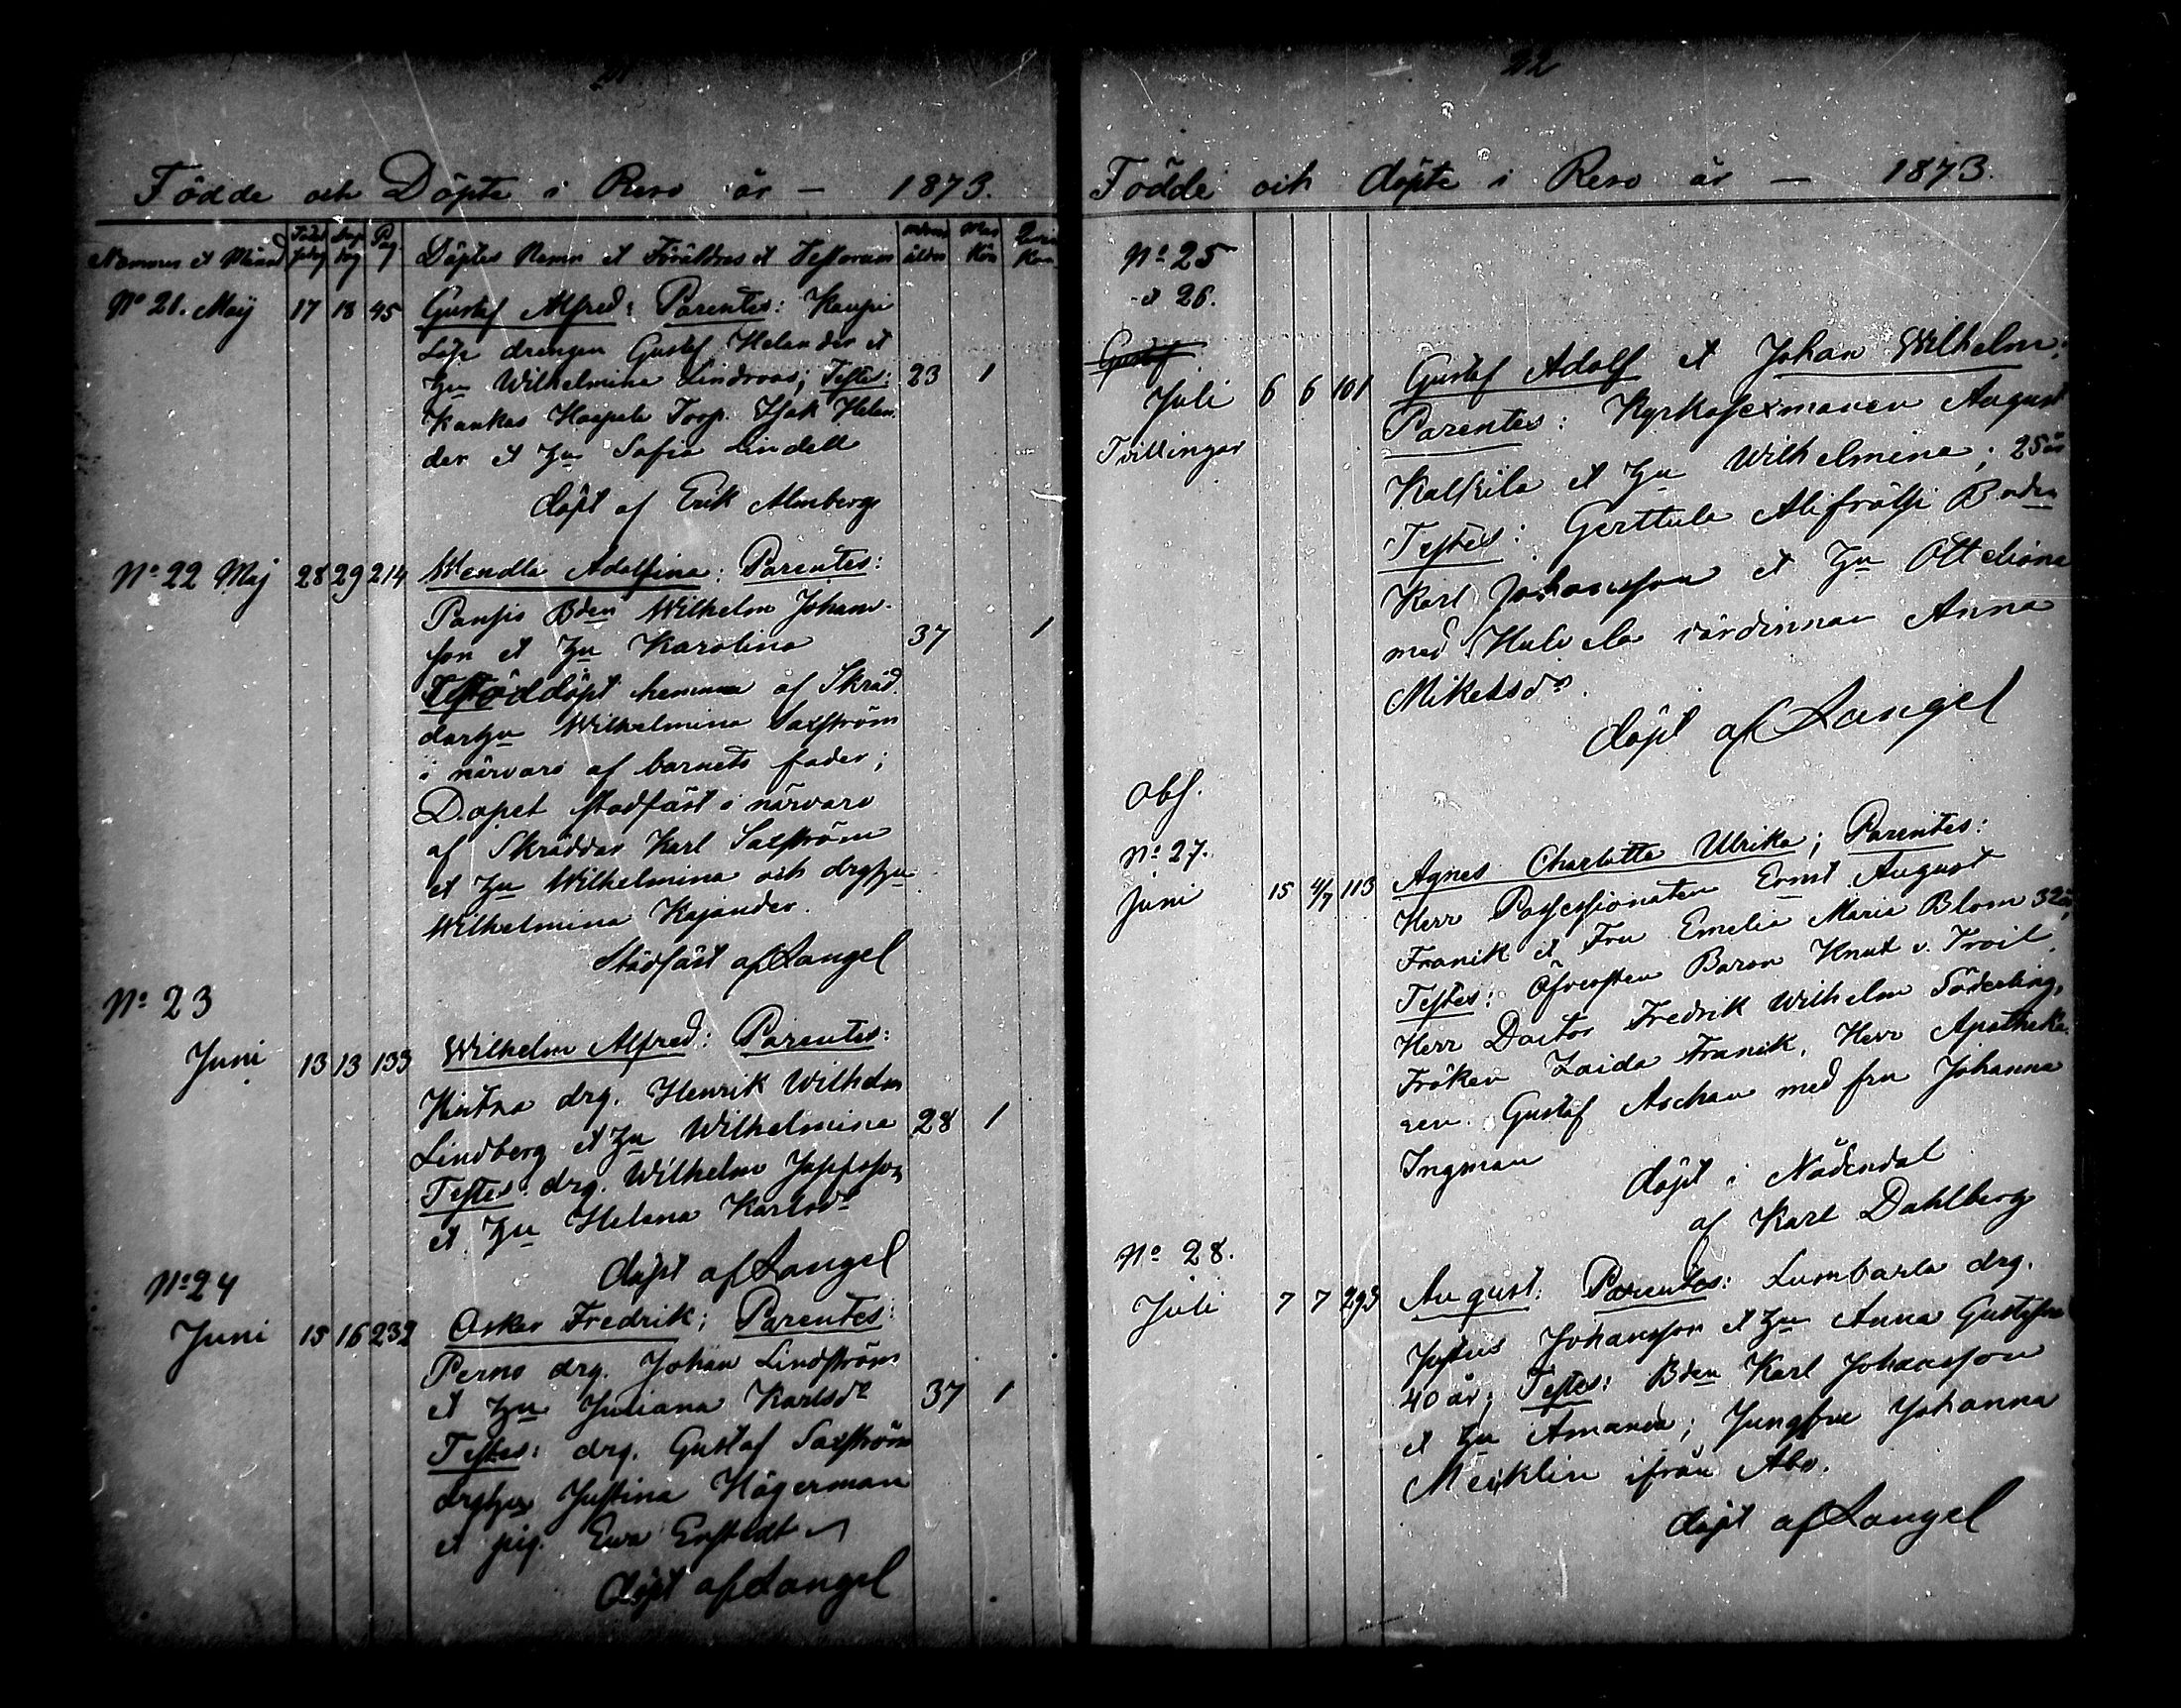 21
Födde och Döpte i Reso år — 1873.
Nummer et Månad Födel sedag Dop dag Pag Döptes Namn et Föräldras et Testorum modrens ålder Man Kön Qvin Kön
No 21. Maij 17 18 45 Gustaf Alfred: Parentes: Kaupi
Löfs drengen Gustaf Helander et
hu Wilhelmina Lindroos; Testes: 23 1
Kankas Haapala Torp. Isak Helan
der et hu Sofia Lindell
döpt af Erik Almberg
No 22 Maj 28 29 214 Wendla Adolfina: Parentes:
Pansis Bden Wilhelm Johans-
son et hu Karolina 37 1
Nöddöpt hemma af Skräd.
darhu Wilhelmina Saxström
i närvaro af barnets fader;
Dopet stadfäst i närvaro
af Skräddar Karl Saxström
et hu Wilhelmina och drghu
Wilhelmina Kajander.
Stadfäst af Langel
No 23
Juni 13 13 133 Wilhelm Alfred: Parentes:
drg. Henrik Wilhelm
Lindberg et hu Wilhelmina 28 1
Testes: drg. Wilhelm Josefsson
et hu Helena Karlsdr
döpt af Langel
No 24
Juni 15 16 232 Oskar Fredrik; Parentes:
Perno drg. Johan Lindström
et hu Juliana Karlsdr 37 1
Testes: drg. Gustaf Saxström
drghu Justina Hägerman
et pig. Ewa Erstedt
döpt af Langel
22
Födde och döpte i Reso år — 1873.
No 25
et 26.
Gustaf
Juli 6 6 101 Gustaf Adolf et Johan Wilhelm:
Tvillingar
Parentes: Kyrkosexmanen August
Kalkila et hu Wilhelmina; 25 år
Testes: Gerttula Alifrälsi Bonden
Karl Johansson et hu Ottiliana
med värdinnan Anna
Mikelsdr.
döpt af Langel
Obs.
No 27.
Juni 15 4/7 113 Agnes Charlotta Ulrika; Parentes:
Herr Possessionaten Ernst August
Franik et Fru Emelie Maria Blom 32 år;
Testes: Öfversten Baron Knut v. Troil,
Herr Doctor Fredrik Wilhelm Söderling,
Fröken Zaida Franik, Herr Apotheka
ren Gustaf Aschan med fru Johanna
Ingman
döpt i Nådendal
af Karl Dahlberg
No 28.
Juli 7 7 293 August: Parentes: Lumbarla drg.
Justus Johansson et hu Anna Gustafsdr
40 år; Testes: Bden Karl Johansson
et hu Amanda; Jungfru Johanna
Meiklin ifrån Åbo.
döpt af Langel